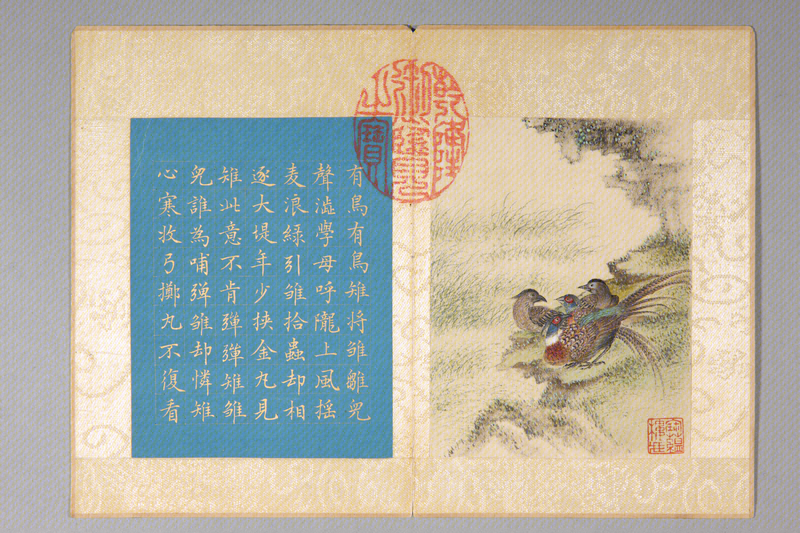 有鳥有鳥雉將雛雛兒
聲澁學母呼隴上風揺
麦浪緑引雛拾蟲却相
逐大堤年少挟金丸見
雉此意不肯彈彈雉雛
兒誰為哺彈雛却憐雉
心寒收弓擲丸不復看
乾隆御覽之寶